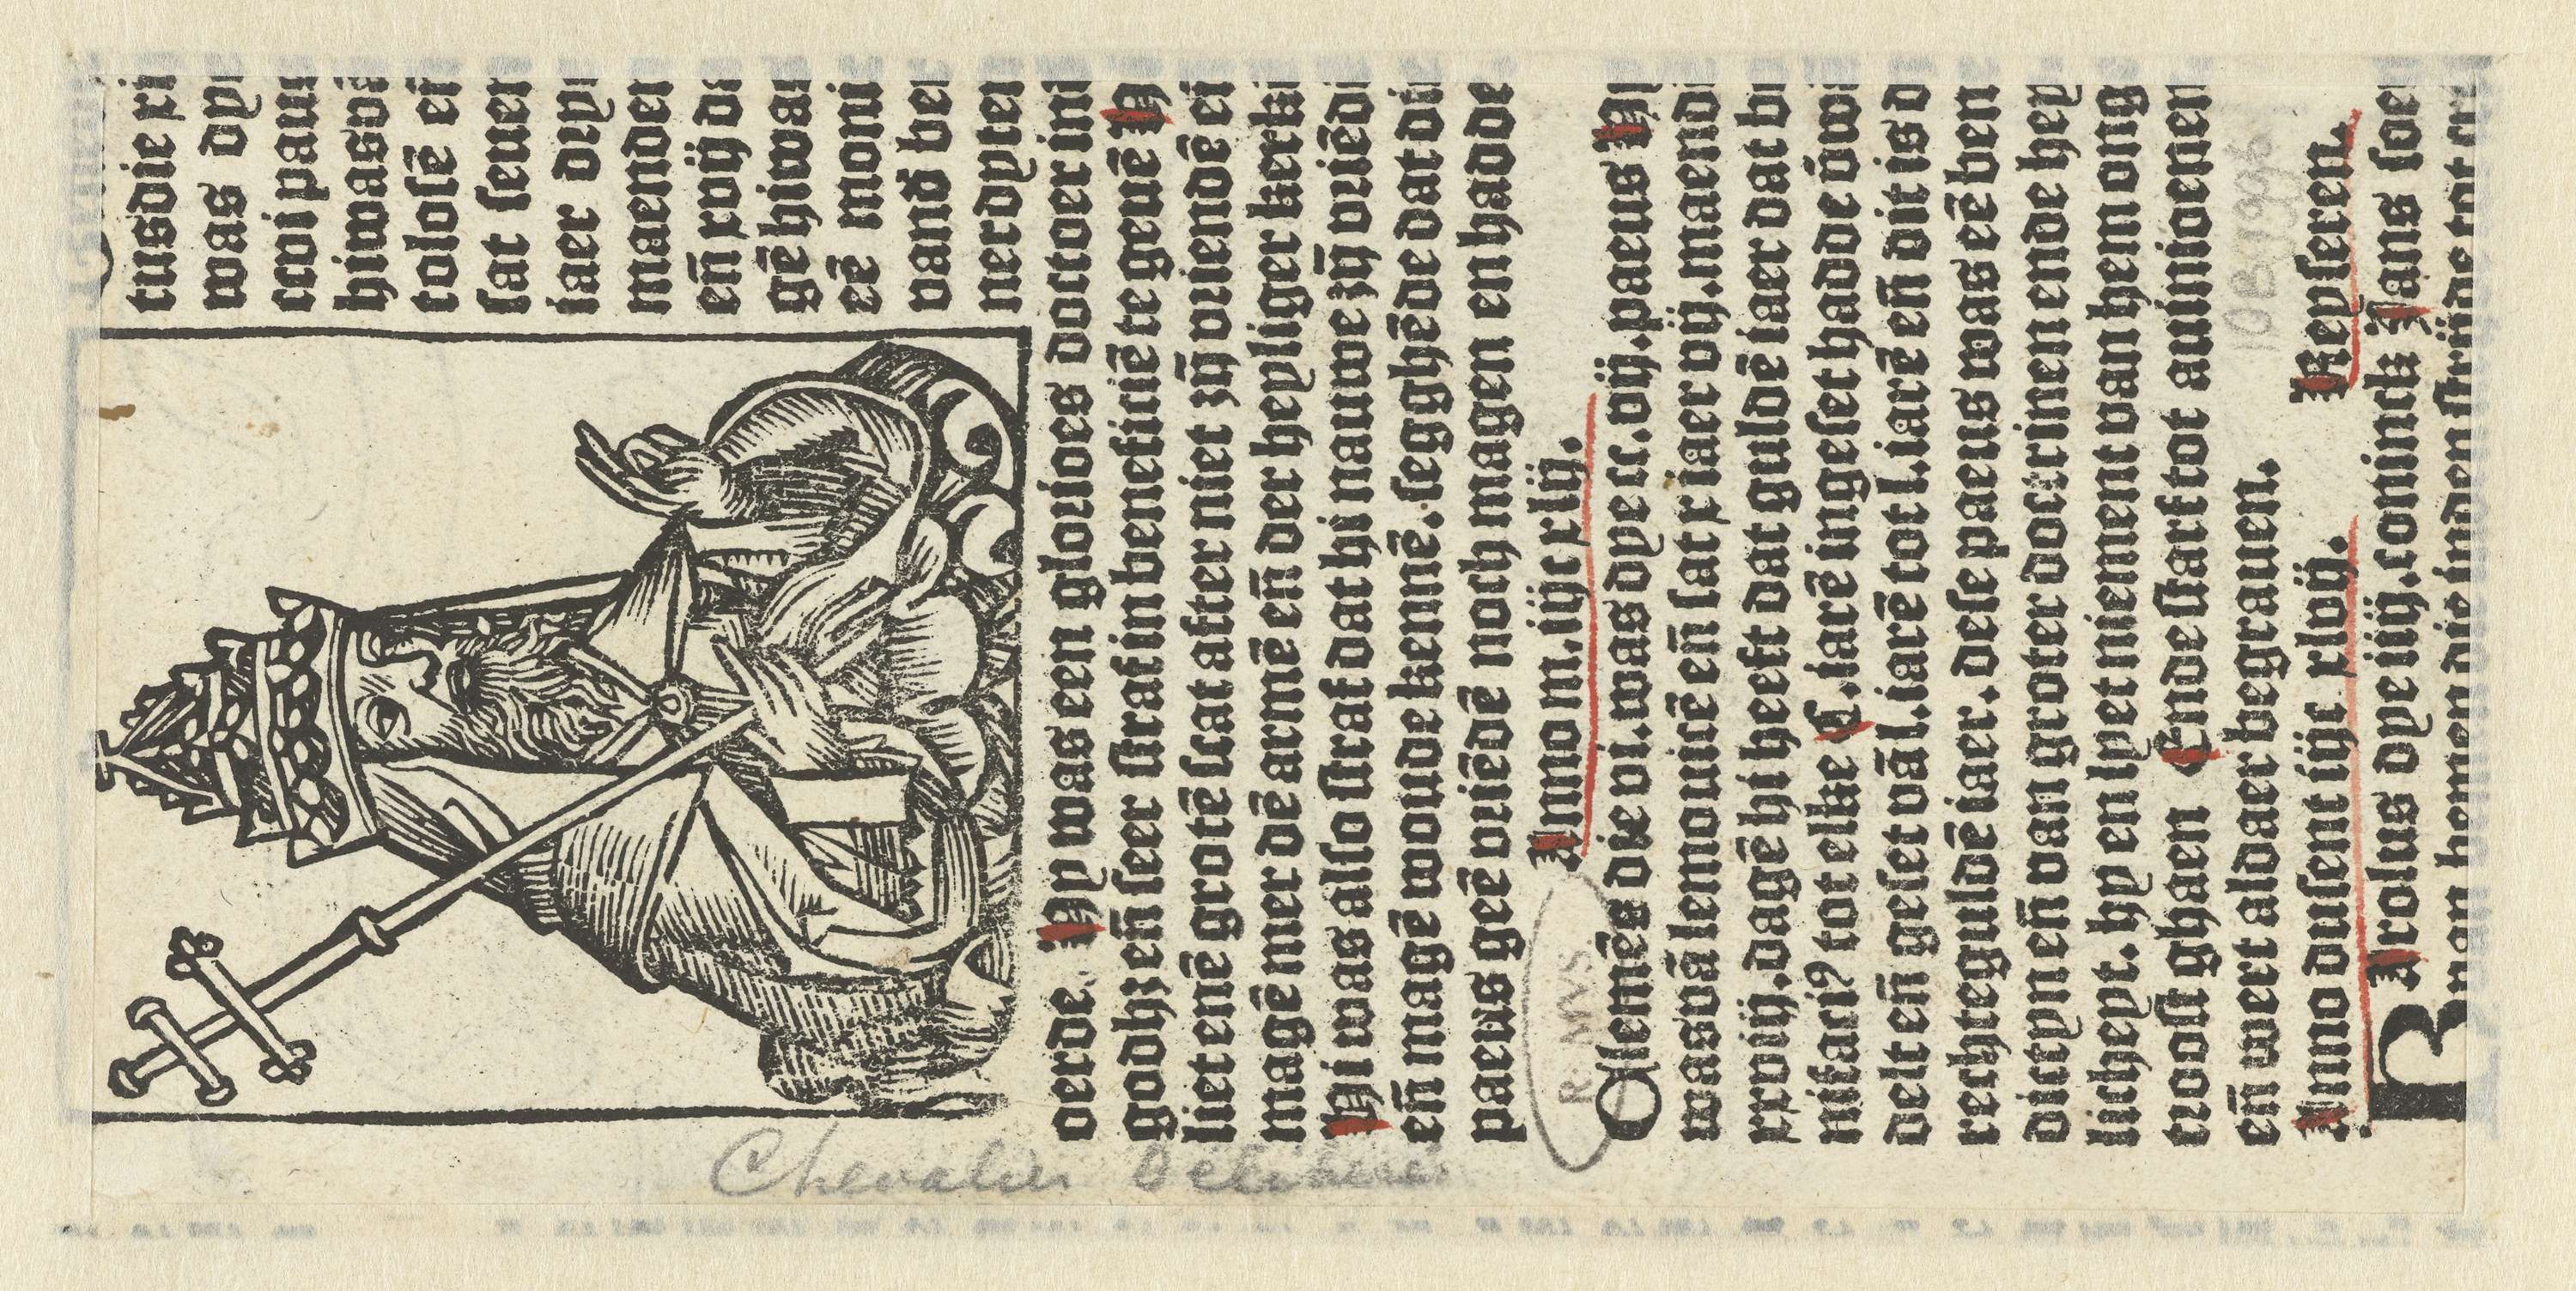 tusdie xi
was dy
ccvi pau
hiwasvā
tolosē eñ
sat seuen
iaer dry
maenden
eñ xvij da
gē hiwas
zē moni
vand ber
nerdyten
oerde. Hy was een glorioes doctoer in
godhz eñ seer straf in beneficiē te geuē H
lietenē grotē scat after niet zij vriendē eñ
magē mer dē armē eñ der heyliger kerk
Hi was also straf dat hi nauwe zij vriēdē
eñ magē woude kennē. segghēde dat di
paeus geē vriēdē noch magen en hadde
Anno m.iijc xlij.
Clemēs die vi. was dye cc.vij. paeus H
was vā lemouicē eñ sat x iaer vij. maend
xxviij. dagē hi heeft dat guldē iaer dat b
nifaci9 tot elke C. iarē ingeset hadde ōw
delt eñ geset vā l. iarē tot l. iarē eñ dit is d
rechte guldē iaer. dese paeus was eē ben
dictyn eñ van groter doctrinen ende hey
licheyt. hy en lyet niement van hem ong
troost ghaen Ende starf tot auinioenen
eñ wert aldaer begrauen.
Anno dusent iijc xlvij. Keyseren.
KArolus dye iiij. coninck Jans soe
van bemen die inden strijde tot
Chevalier Délibéré
R. MVS.